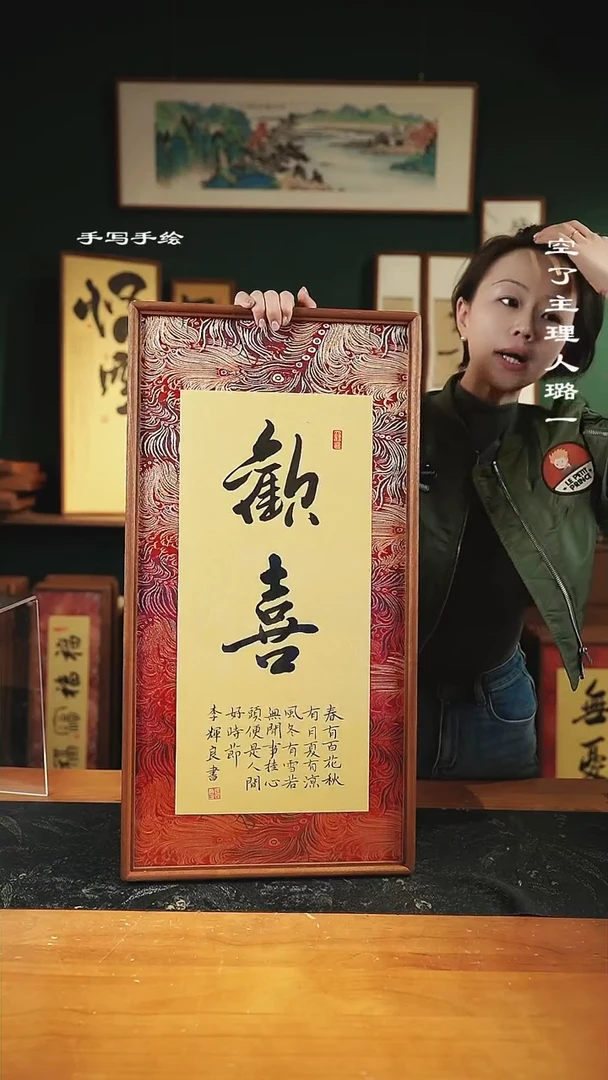 手写手绘
空了主理人璐一
歡喜
春有百花秋
有月夏有涼
風冬有雪若
無閑事挂心
頭便是人間
好時節
李輝良書
LE PETIT PRINCE
福
無憂